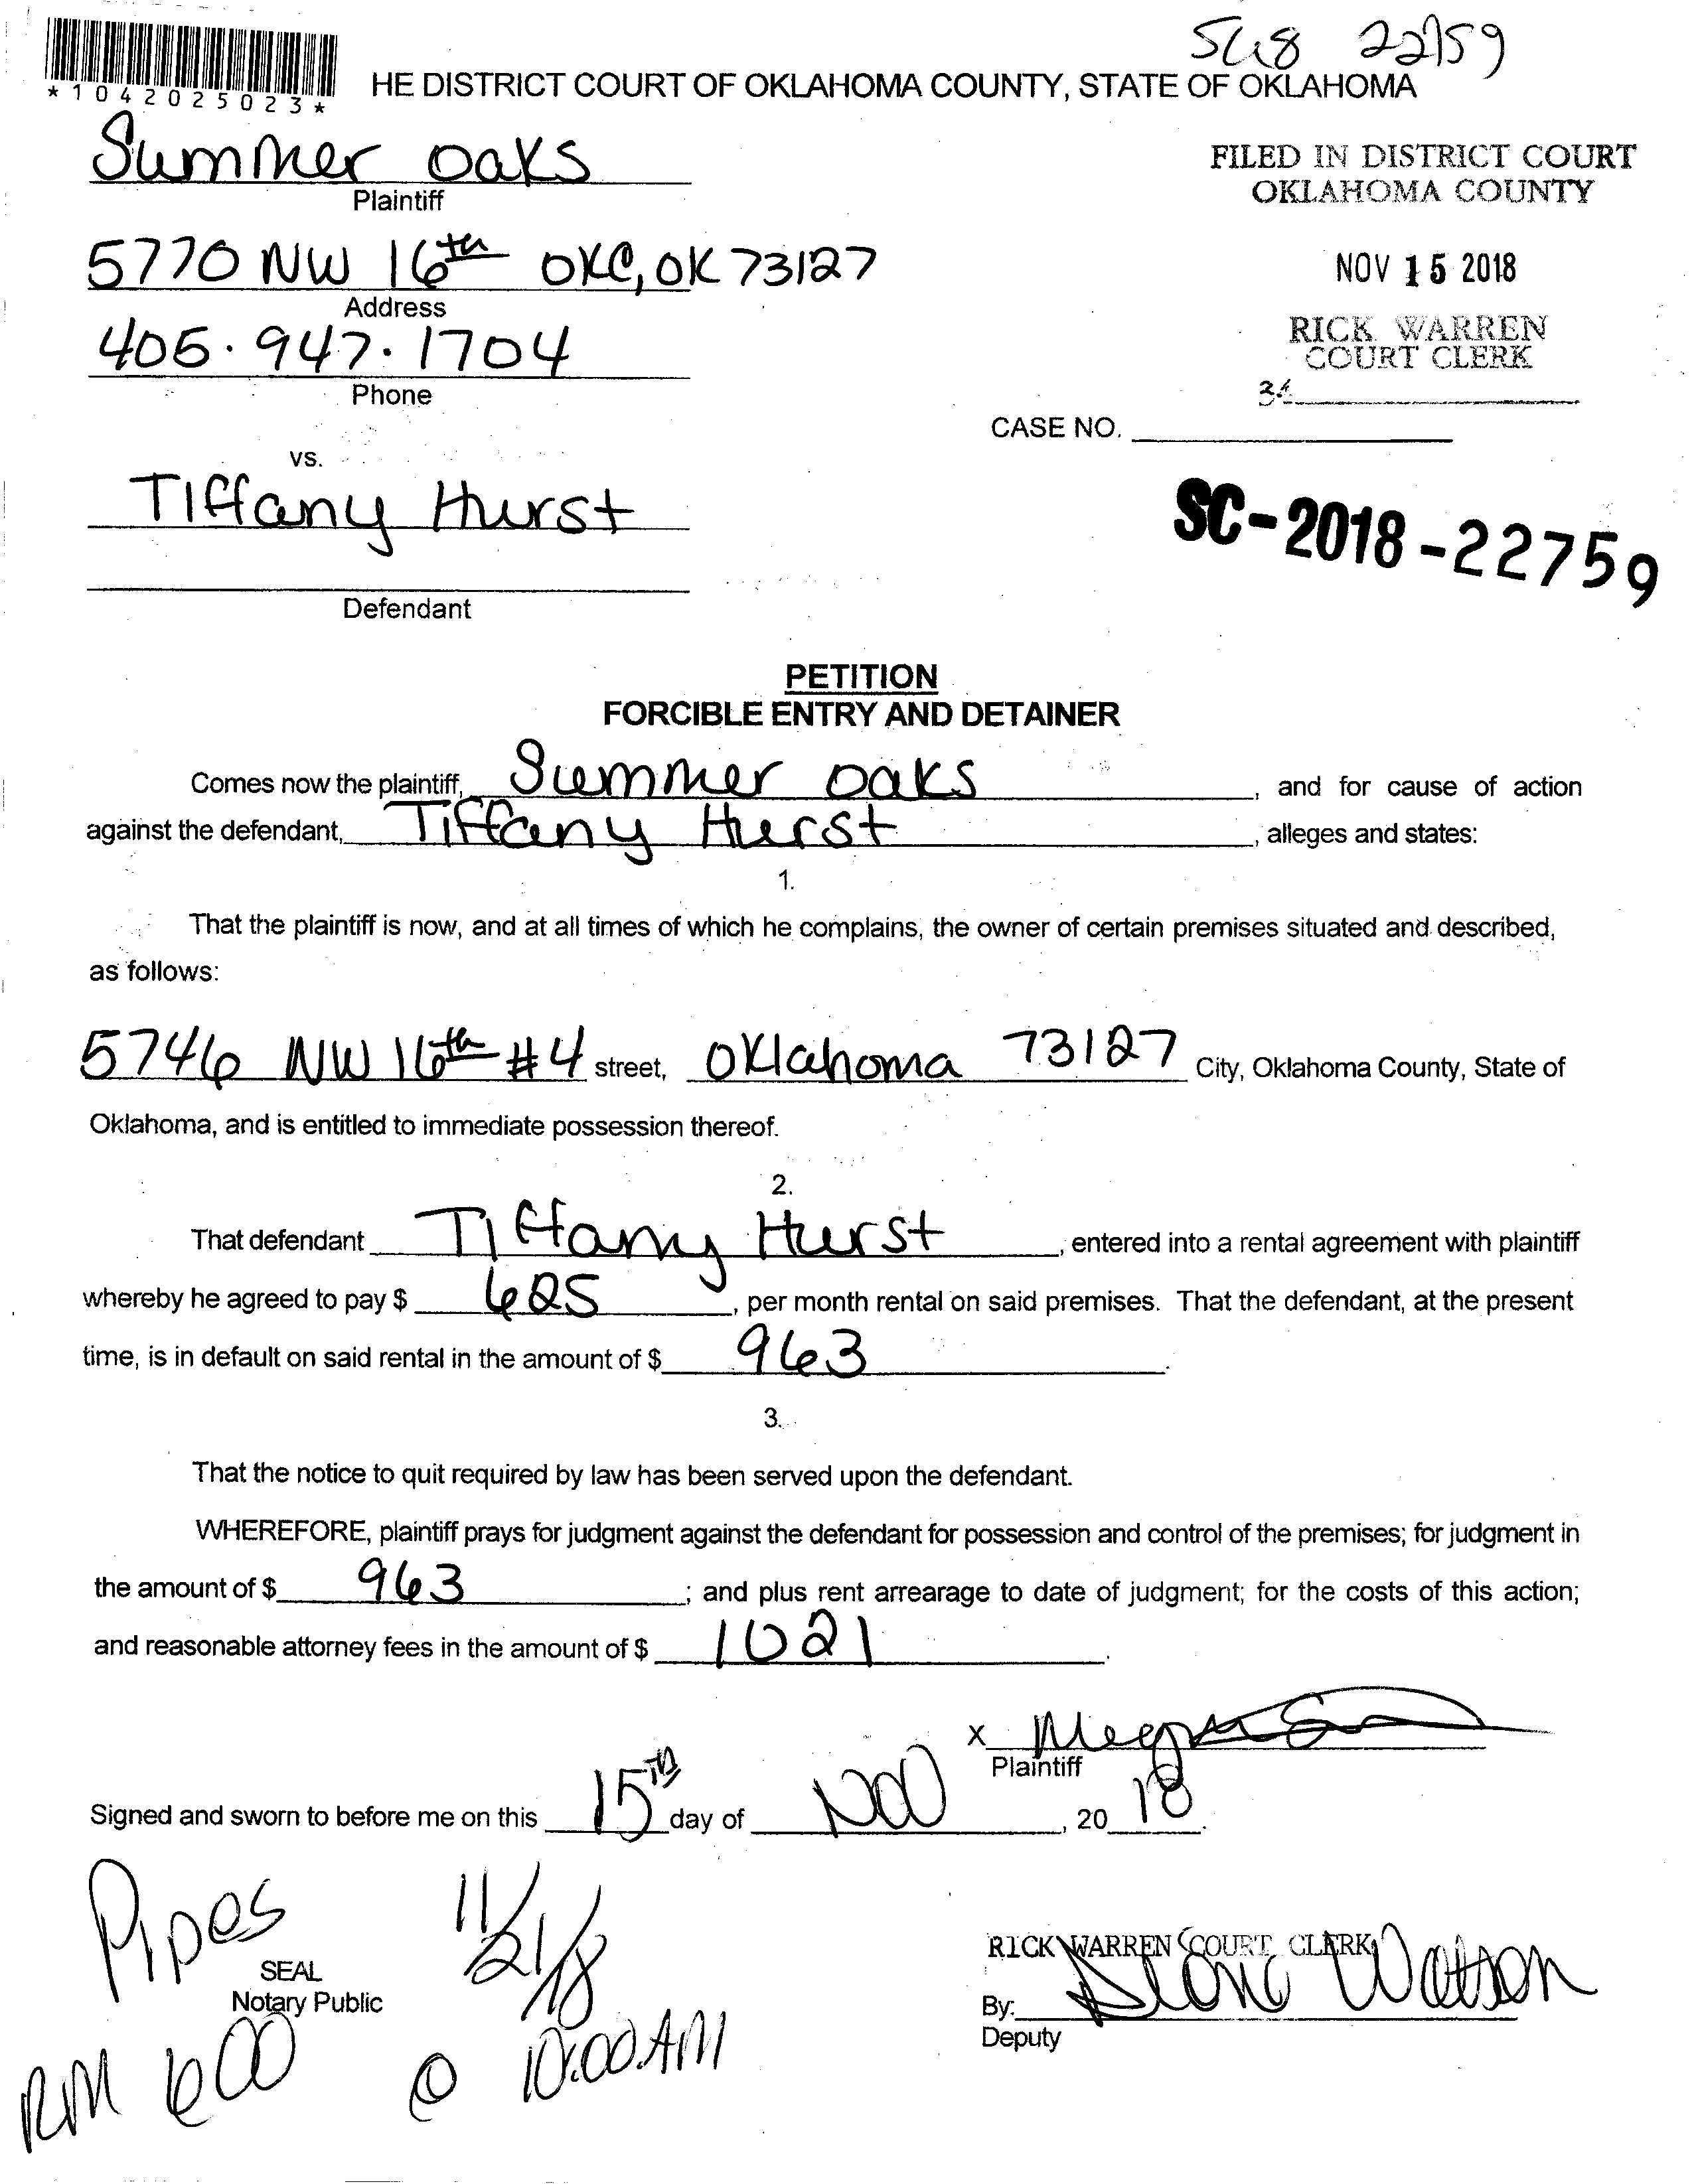 SC18 22759
*1042025023*
HE DISTRICT COURT OF OKLAHOMA COUNTY, STATE OF OKLAHOMA
Summer oaks
Plaintiff
FILED IN DISTRICT COURT
OKLAHOMA COUNTY
5770 NW 16th OKC, OK 73127
Address
NOV 15 2018
405.947.1704
Phone
RICK WARREN
COURT CLERK
34
CASE NO.
vs.
Tiffany Hurst
Defendant
SC-2018-22759
PETITION
FORCIBLE ENTRY AND DETAINER
Comes now the plaintiff, Summer oaks, and for cause of action
against the defendant, Tiffany Hurst, alleges and states:
1.
That the plaintiff is now, and at all times of which he complains, the owner of certain premises situated and described,
as follows:
5746 NW 16th #4 street, Oklahoma 73127 City, Oklahoma County, State of
Oklahoma, and is entitled to immediate possession thereof.
2.
That defendant Tiffany Hurst, entered into a rental agreement with plaintiff
whereby he agreed to pay $ 625, per month rental on said premises. That the defendant, at the present
time, is in default on said rental in the amount of $ 963.
3.
That the notice to quit required by law has been served upon the defendant.
WHEREFORE, plaintiff prays for judgment against the defendant for possession and control of the premises; for judgment in
the amount of $ 963; and plus rent arrearage to date of judgment; for the costs of this action;
and reasonable attorney fees in the amount of $ 1021.
X
Plaintiff
Signed and sworn to before me on this 15TH day of NOV, 2018.
Pipes
11/21/18
SEAL
Notary Public
RM 600 @ 10:00 AM
RICK WARREN COURT CLERK
By: Watson
Deputy